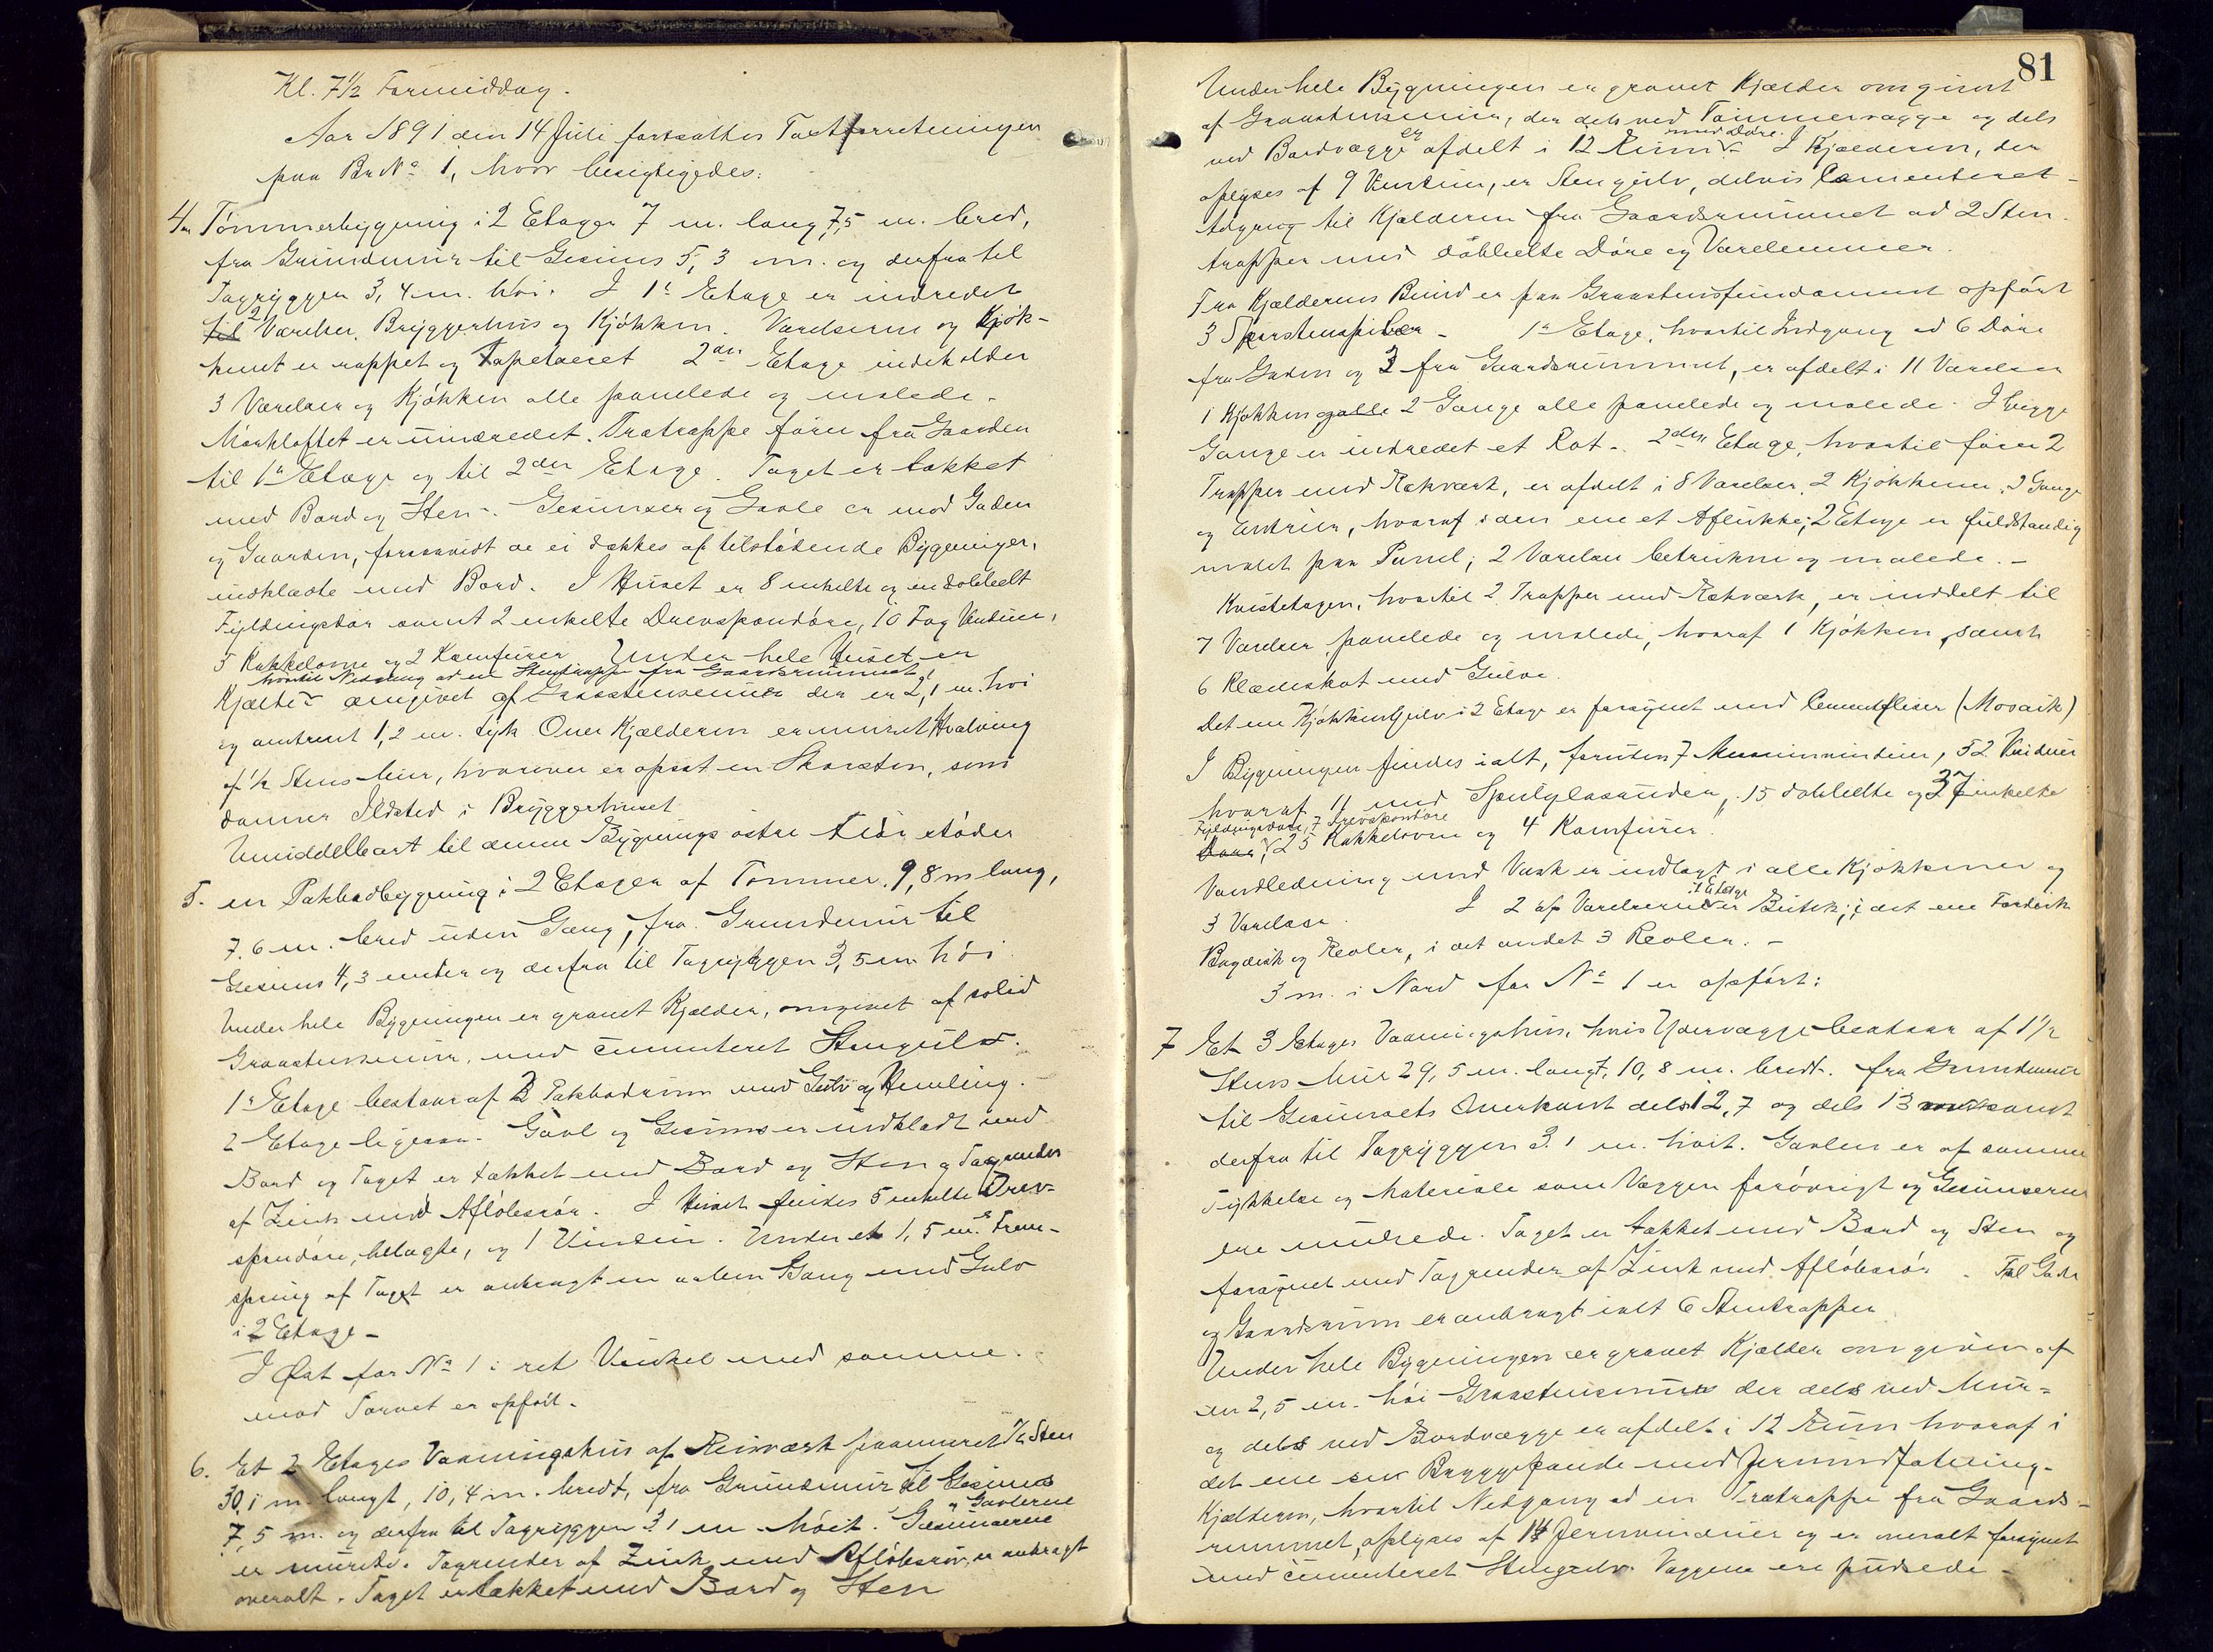 Kl. 7 1/2 Formiddag.
Aar 1891 den 14 Juli fortsattes Taxtforretningen
paa BrNo 1, hvor besigtigedes:
4. Tømmerbygning i 2 Etager 7 m. lang, 7,5 m. bred,
fra Grundmur til Gesims 5,3 m. og derfra til
Tagryggen 3,4 m. høi. I 1ste Etage er indredet
til 2 Værelser, Bryggerhus og Kjøkken. Værelserne og Kjøk-
kenet er rappet og Tapetseret 2den Etage indeholder
3 Værelser og Kjøkken alle panelede og malede.
Mørkloftet er uindredet. Trætrappe fører fra Gaarden
til 1ste Etage og til 2den Etage. Taget er tækket
med Bord og Sten. Gesimser og Gavle er mod Gaden
og Gaarden, forsaavidt de ei dækkes af tilstødende Bygninger,
indklædte med Bord. I Huset er 8 enkelte og en dobbelt
Fyldingsdør samt 2 enkelte Drevspondøre, 10 Fag Vinduer,
5 Kakkelovne og 2 Komfurer Under hele Huset er
hvortil Nedgang ad en Stentrappe fra Gaardsrummet
Kjælder omgivet af Graastensmur der er 2,1 m. høi
og omtrent 1,2 m. tyk Over Kjælderen er muret Hvælving
af 1/2 Stens Mur, hvorover er opsat en Skorsten, som
danner Ildsted i Bryggerhuset
Umiddelbart til denne Bygnings østre Side støder
5. en Pakbodbygning i 2 Etager af Tømmer, 9,8 m lang,
7.6 m. bred uden Gang, fra Grundmur til
Gesims 4,3 meter og derfra til Tagryggen 3,5 m høi.
Under hele Bygningen er gravet Kjælder, omgivet af solid
Graastensmur, med cementeret Stengulv.
1ste Etage bestaar af 2 Pakbodrum med Gulv og Himling.
2 Etage ligesaa. Gavl og Gesims er indklædt med
Bord og Taget er tækket med Bord og Sten og Tagrender
af Zink med Afløbsrør. I Huset findes 5 enkelte Drev-
spondøre, belagte, og 1 Vindu. Under et 1,5 m. Frem-
spring af Taget er anbragt en aaben Gang med Gulv
i 2 Etage -
I Øst for No 1 i ret Vinkel med samme.
mod Torvet er opført.
6. Et 2 Etages Vaaningshus af Reisværk paamuret 1/2 Sten
30,1 m. langt, 10,4 m. bredt, fra Grundmur til Gesims
7,5 m. og derfra til Tagryggen 3.1 m. høit. Gesimserne og Gavlerne
er murede. Tagrender af Zink med Afløbsrør er anbragt
overalt. Taget er tækket med Bord og Sten
81
Under hele Bygningen er gravet Kjælder omgivet
af Graastensmur, der dels ved Tømmervægge og dels
ved Bordvægge er afdelt i 12 Rum med Døre. I Kjælderen, der
oplyses af 9 Vinduer, er Stengulv, delvis Cementeret -
Adgang til Kjælderen fra Gaardsrummet ad 2 Sten-
trapper med dobbelte Døre og Varelemmer.
Fra Kjælderens Bund er paa Graastensfundament opført
3 Skorstenspiber - 1ste Etage, hvortil Indgang ad 6 Døre
fra Gaden og 3 fra Gaardsrummet, er afdelt i 11 Værelser
1 Kjøkken og alle 2 Gange alle panelede og malede. I begge
Gange er indredet et Kot. 2den Etage, hvortil fører 2
Trapper med Rækværk, er afdelt i 8 Værelser, 2 Kjøkkener, 2 Gange
og Entreer, hvoraf i den ene et Aflukke; 2 Etage er fuldstændig
malet paa Panel; 2 Værelser betrukne og malede. -
Kvistetagen, hvortil 2 Trapper med Rækværk, er inddelt til
7 Værelser panelede og malede, hvoraf 1 Kjøkken, samt
6 Klædeskot med Gulve.
Det ene Kjøkkengulv i 2 Etage er forsynet med Cementfliser (Mosaik)
I Bygningen findes ialt, foruden 7 Murvinduer, 52 Vinduer
hvoraf 11 med Speilglasruder, 15 dobbelte og 37 enkelte
Fyldingsdøre, 7 Drevspondøre
Døre, 25 Kakkelovne og 4 Komfurer.
Vandledning med Vask er indlagt i alle Kjøkkener og
3 Værelser. I 2 af Værelserne i 1 Etage er Butik; i det ene Fordisk
Bagdisk og Reoler, i det andet 3 Reoler. -
3 m. i Nord for No 1 er opført:
7 Et 3 Etages Vaaningshus, hvis Ydervægge bestaar af 1 1/2
Stens Mur 29,5 m. langt, 10,8 m. bredt. fra Grundmur
til Gesimsets Overkant dels 12,7 og dels 13 samt
derfra til Tagryggen 3.1 m. høit. Gavlen er af samme
Tykkelse og Materiale som Væggen forøvrigt og Gesimserne
ere murede. Taget er tækket med Bord og Sten og
forsynet med Tagrender af Zink med Afløbsrør. Til Gade
og Gaardsrum er anbragt ialt 6 Stentrapper
Under hele Bygningen er gravet Kjælder omgiven af
en 2,5 m. høi Graastensmur der dels ved Mur-
og dels ved Bordvægge er afdelt i 12 Rum hvoraf i
det ene en Bryggepande med Jernindfatning.
Kjælderen, hvortil Nedgang ad en Trætrappe fra Gaards-
rummet, oplyses af 14 Jernvinduer og er overalt forsynet
med cementeret Stengulv. Væggene ere pudsede -